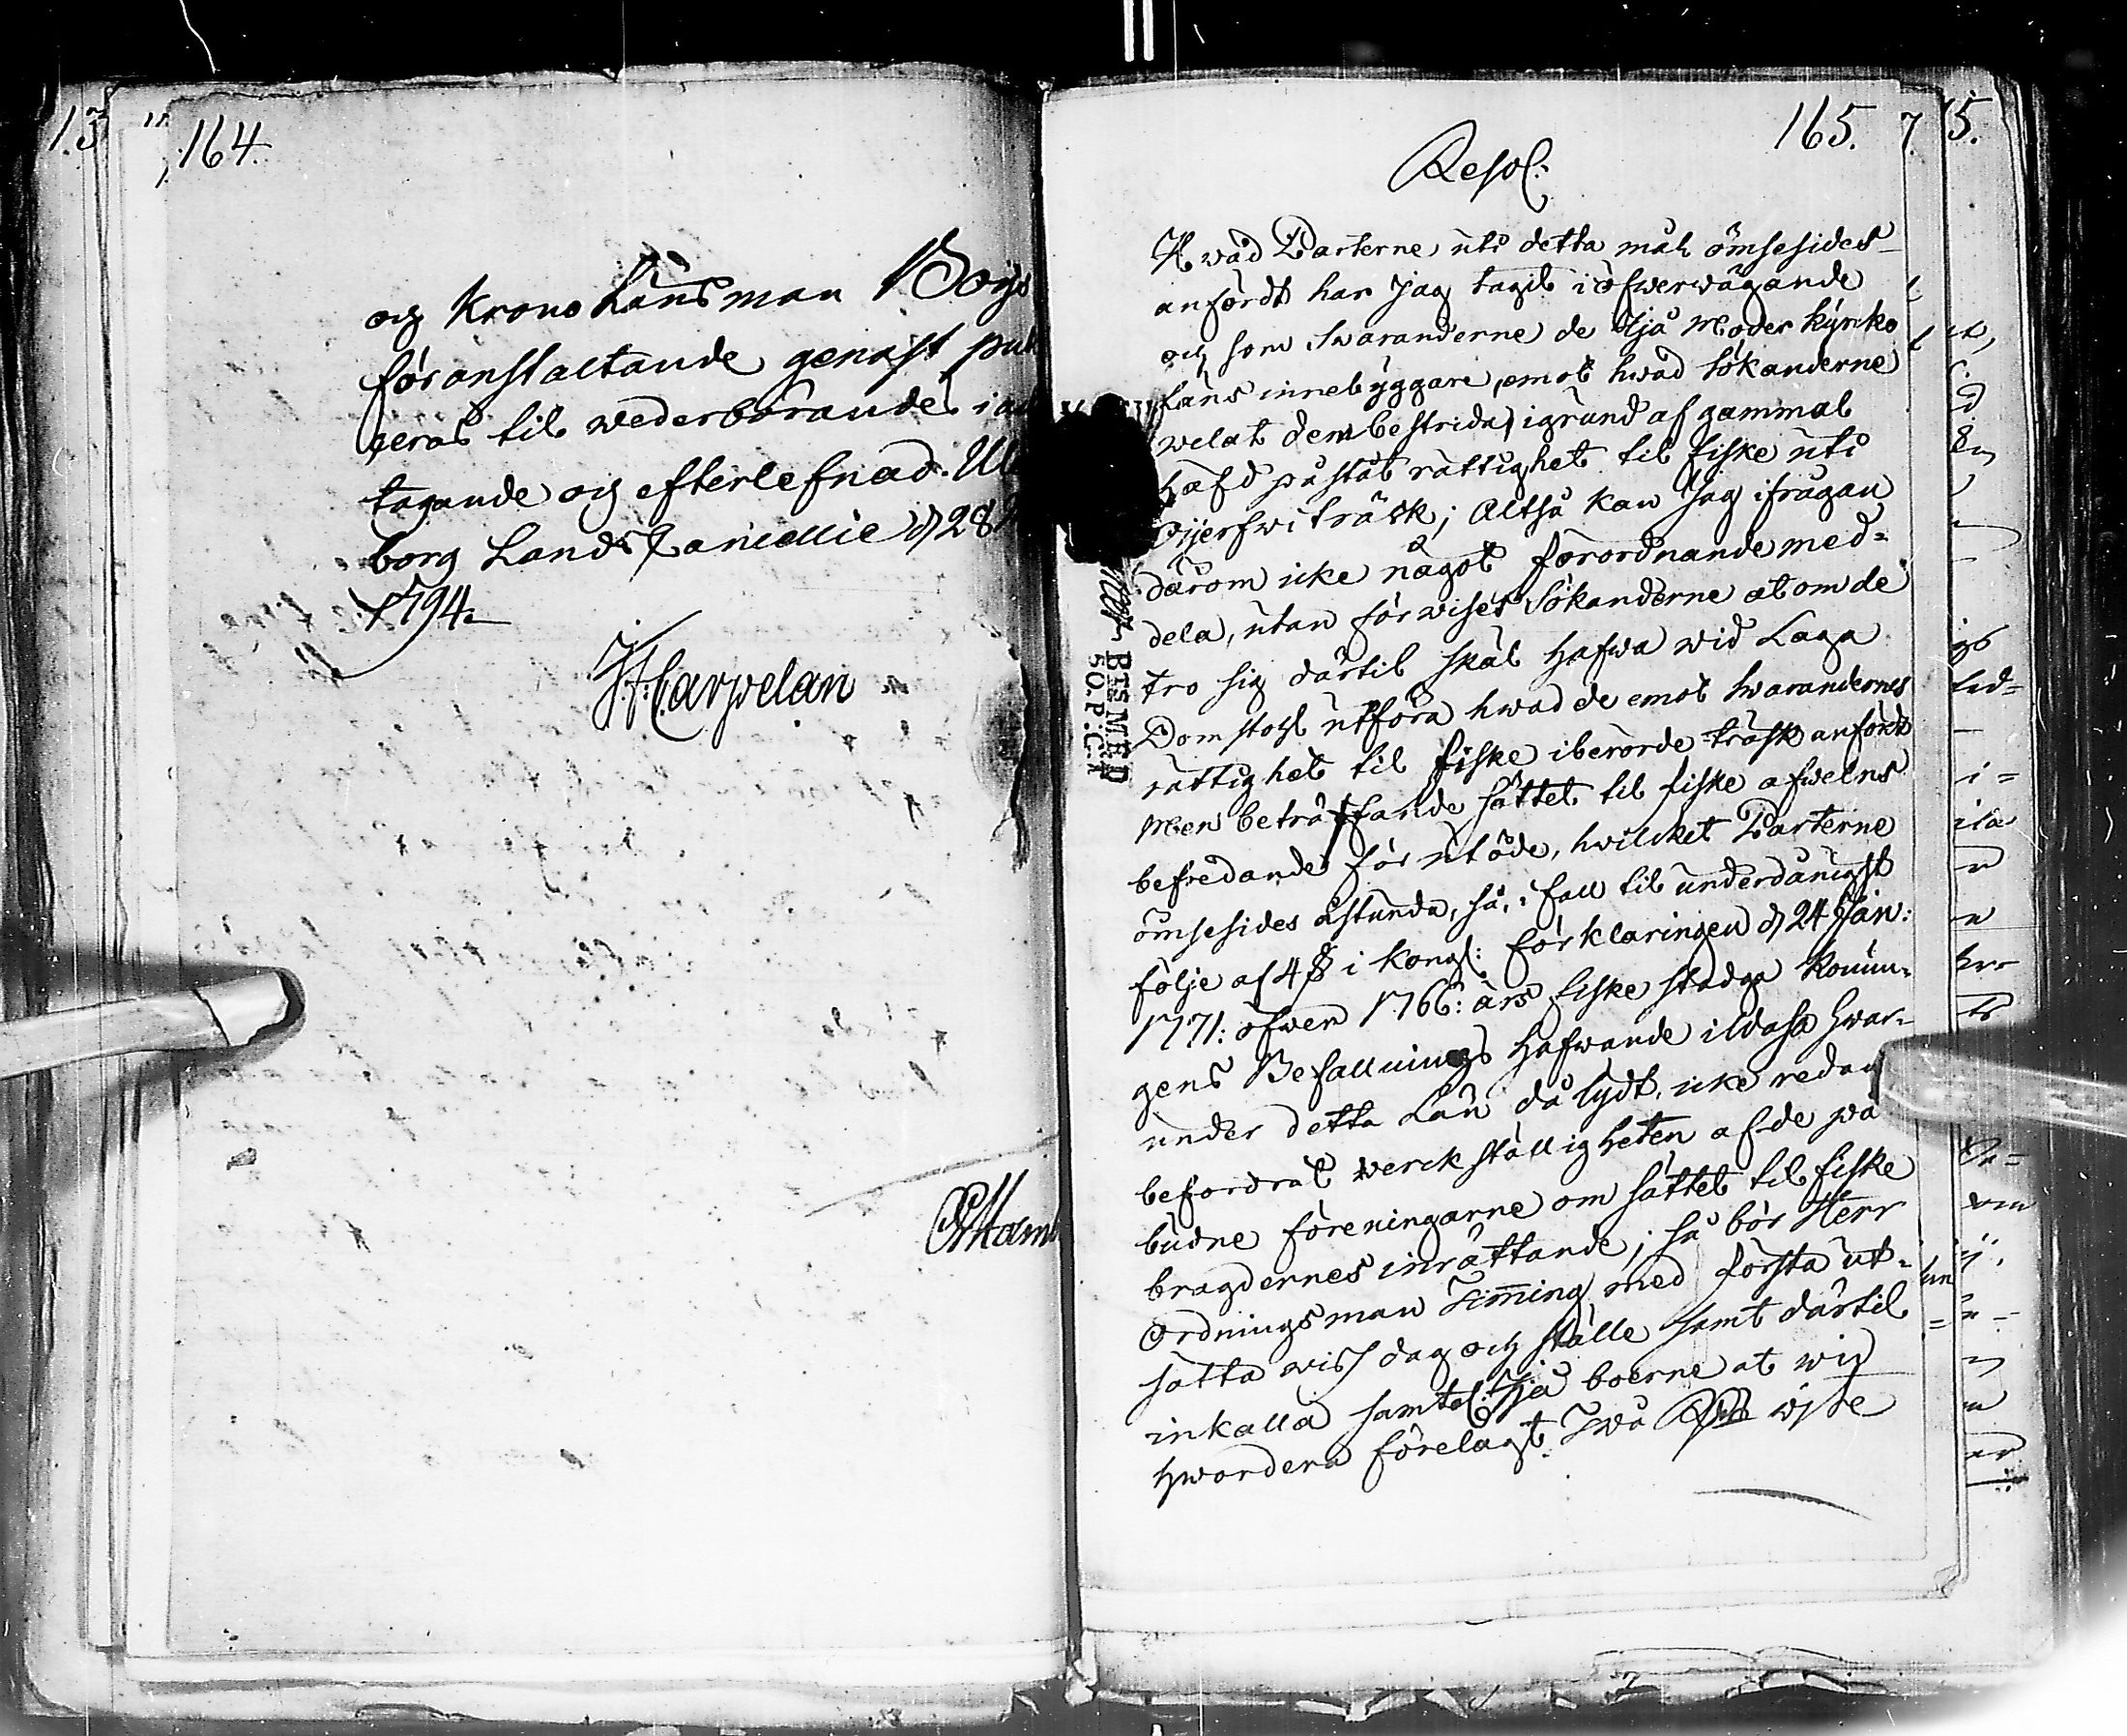 164.
och Krono Länsman Boijs
föranstaltande genast pub
ceras til wederbörandes i ack
tagande och efterlefnad. Ul
borg Lands Cancellie d 28
1794.
J. F. Carpelan
165.
Resol:
Hwad Parterne uti detta mål ömsesides
anfördt har Jag tagit i öfwerwägande
och som Swaranderne de Ijå Moder kyrko
fäns innebyggare, emot hwad Sökanderne
welat dem bestrida, i grund af gammal
häfd påstått rättighet til fiske uti
träsk; Altså kan Jag i frågan
därom icke något förordnande med=
dela, utan förwises Sökanderne at om de
tro sig därtil skäl hafwa wid Laga
Domstohl utföra hwad de emot Swarandernes
rättighet til fiske i berörde träsk anfördt
Men beträffande sättet til fiske afwelns
befredande för utöde, hwilcket Parterne
ömsesides åstunda, så, i fall til underdånigst
följe af 4 § i Kongl: förklaringen d 24 Jan:
1771. öfwer 1766: års fiske stadga Konun=
gens Befallnings Hafwande i Wasa hwar=
under detta Län då lydt, icke redan
befordrat werckställigheten af de på
budne föreningarne om sättet til fiske
bragdernes inrättande; så bör Herr
Ordningsman Timming med första ut=
sätta wiss dag och ställe samt därtil
inkalla samtel: Ijå boerne at wid
hwardera förelagt Twå wite